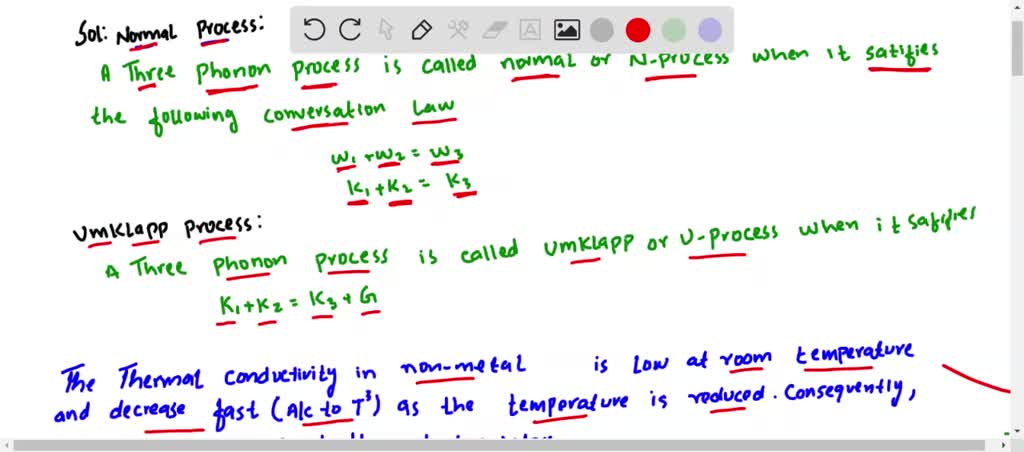 Sol: Normal Process:
A Three Phonon Process is called normal or N-Process when it satisfies
the following conversation Law
w₁+w₂=w₃
K₁+K₂= K₃
UmKlapp Process:
A Three Phonon Process is called UmKlapp or U-Process when it satisfies
K₁+K₂=K₃+G
The Thermal conductivity in non-metal is low at room temperature
and decrease fast (A/c to T³) as the temperature is reduced. Consequently,